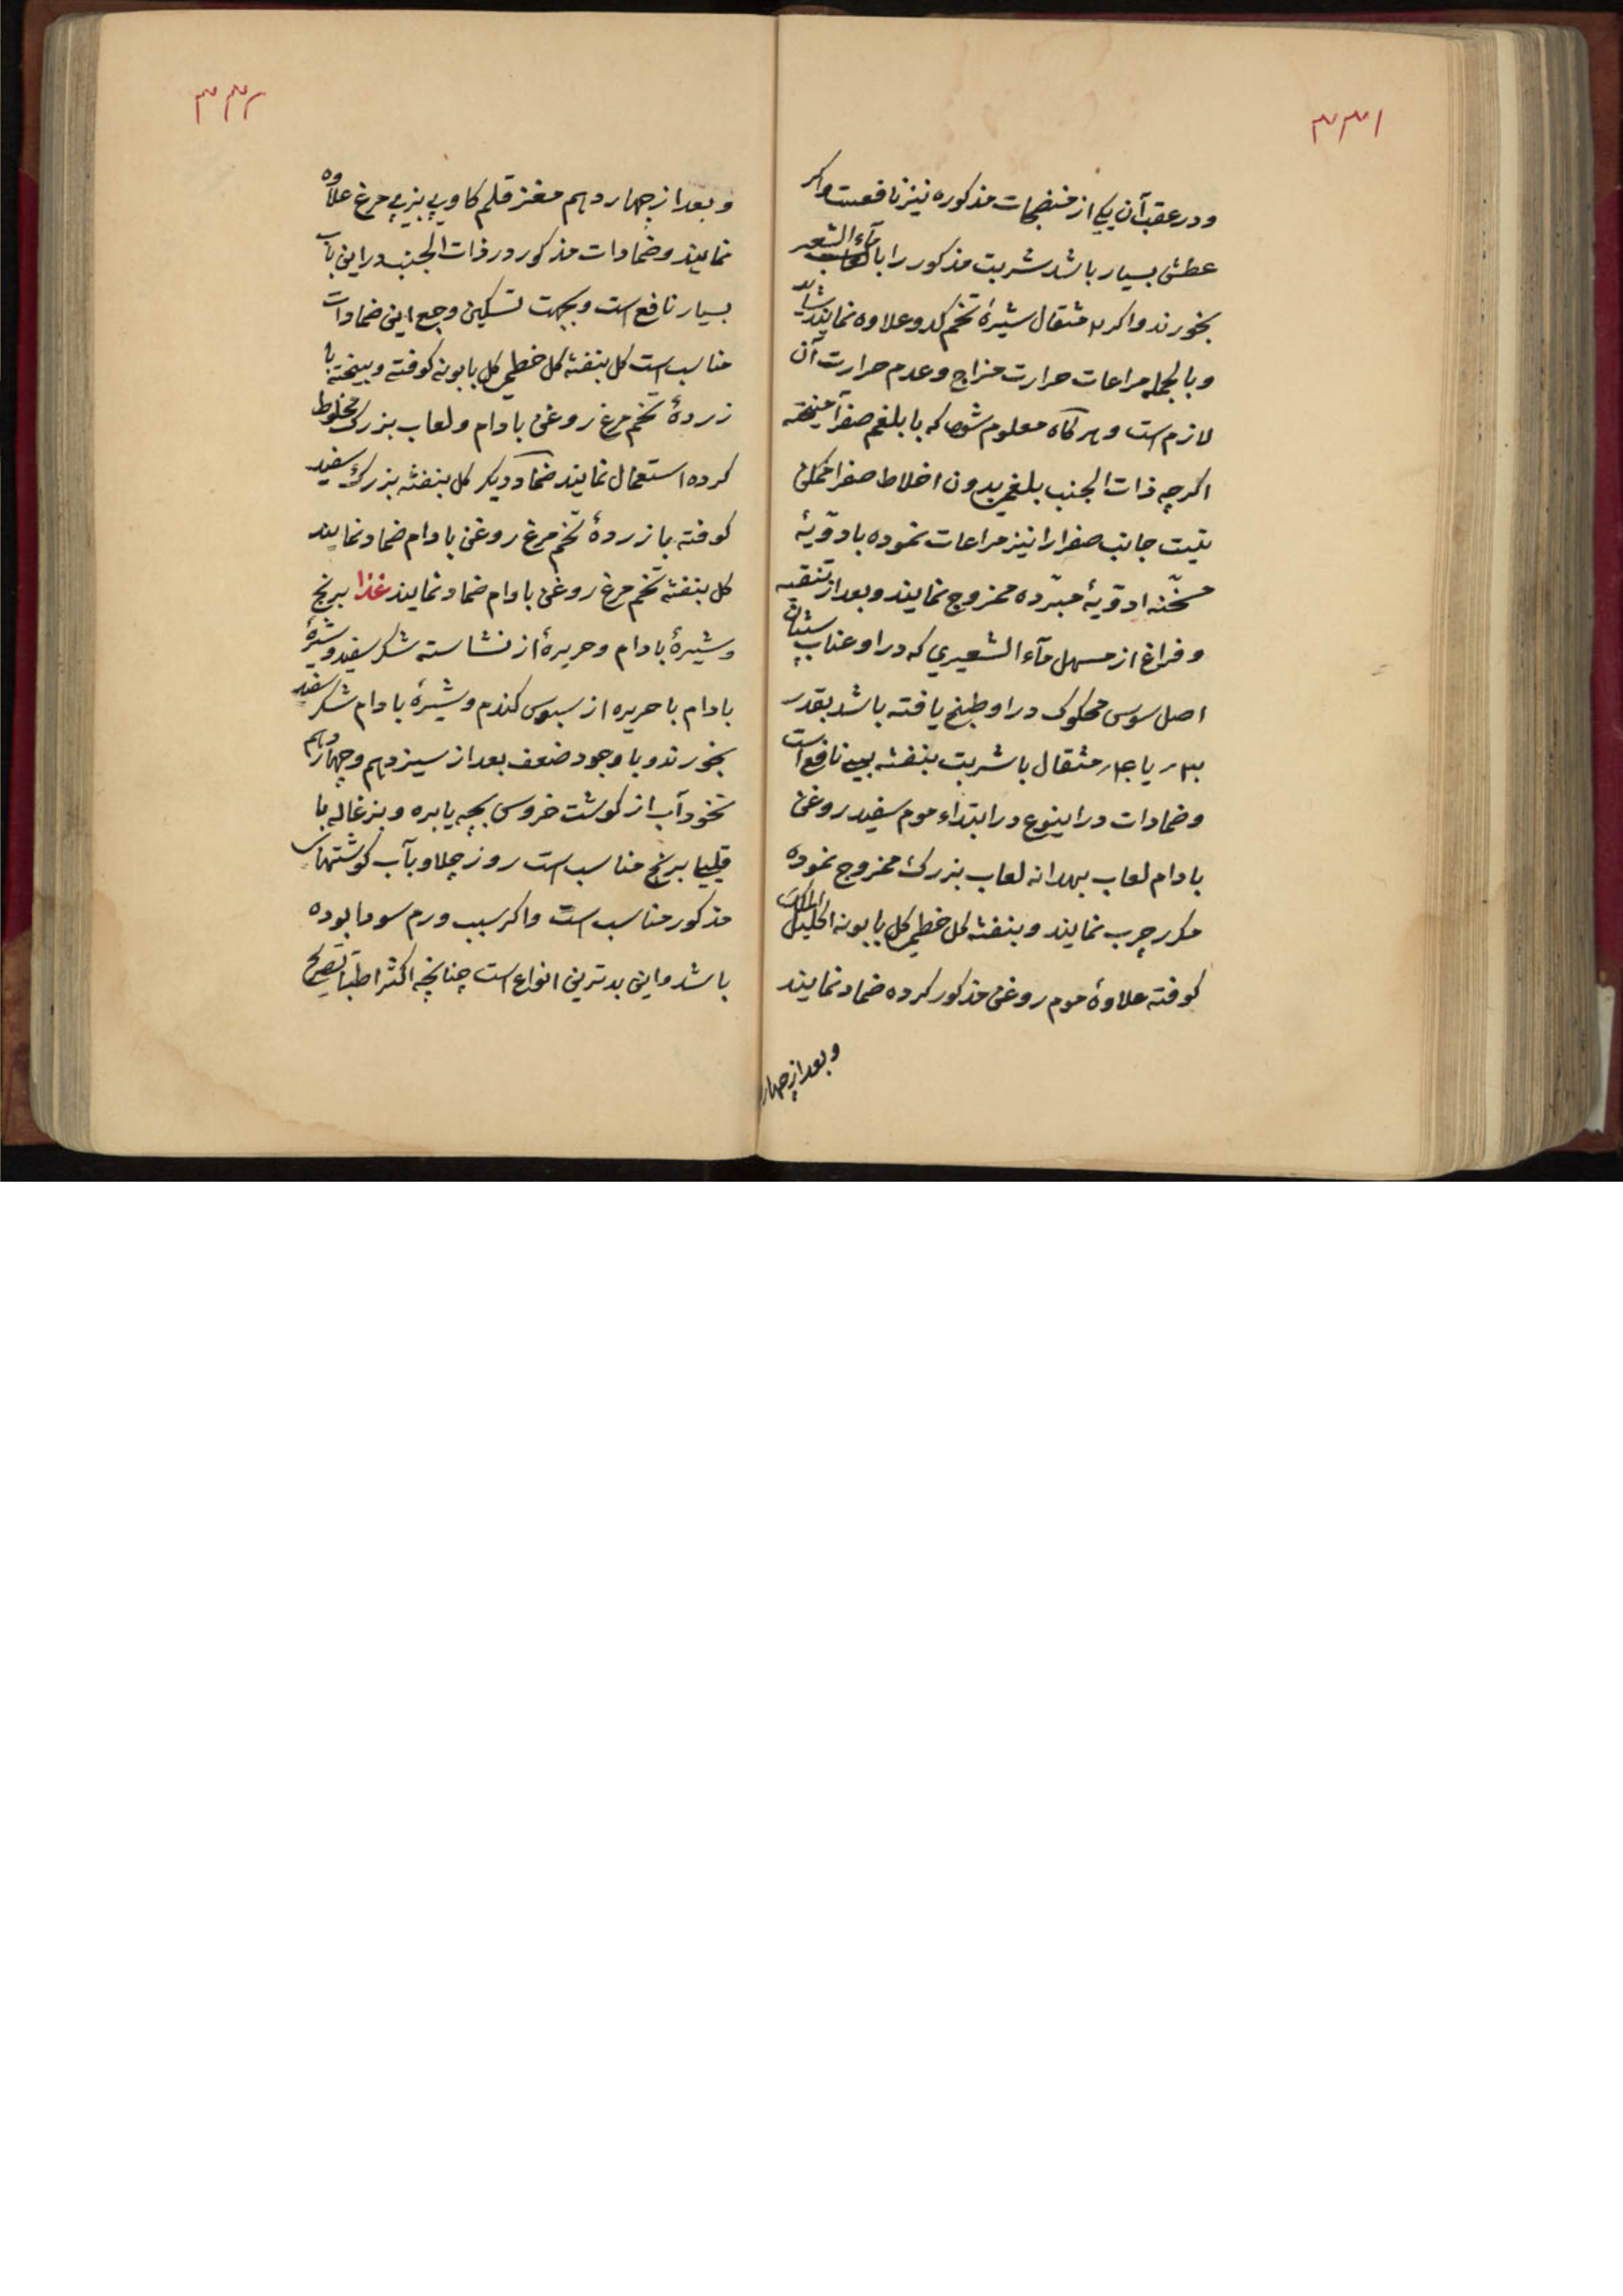 ۳۳۱
ودر عقب آن یکی از منضجات مذکوره نیز نافعست واکر
عطش بسیار باشد شربت مذکور را با ماء الشعیر
بخورند واکر مثقال شیرهٔ تخم کدو علاوه نمایند شاید
وبالجمله مراعات حرارت مزاج وعدم حرارت آن
لازم است وهرکاه معلوم شود که با بلغم صفرا آمیخته
اکرچه ذات الجنب بلغمی بدون اخلاط صفرا ممکن
نیست جانب صفرا را نیز مراعات نموده بادویهٔ
مسخّنه ادویهٔ مبرّده ممزوج نمایند وبعد از تنقیه
وفراغ از مسهل ماء الشعیری که در او عناب سپستان
اصل سوس محکوک در او طبخ یافته باشد بقدر
یا مثقال با شربت بنفشه نافع است
وضمادات در اینوع در ابتداء موم سفید روغن
بادام لعاب بهدانه لعاب بزرک ممزوج نموده
مکرر چرب نمایند وبنفشه کل خطمی کل بابونه اکلیل الملک
کوفته علاوهٔ موم روغن مذکور کرده ضماد نمایند
وبعد از چهار
۳۳۲
وبعد از چهاردهم مغز قلم کاو وپی بز پی مرغ علاوه
نمایند وضمادات مذکور در ذات الجنب در این باب
بسیار نافع است وبجهت تسکین وجع این ضمادات
مناسب است کل بنفشه کل خطمی کل بابونه کوفته وبیخته با
زردهٔ تخم مرغ روغن بادام ولعاب بزرک مخلوط
کرده استعمال نمایند ضماد دیکر کل بنفشه بزرک سفید
کوفته با زردهٔ تخم مرغ روغن بادام ضماد نمایند
کل بنفشه تخم مرغ روغن بادام ضماد نمایند غذا برنج
وشیرهٔ بادام وحریرهٔ از نشاسته شکر سفید وشیرهٔ
بادام با حریره از سبوس کندم وشیرهٔ بادام شکر سفید
بخورند وبا وجود ضعف بعد از سیزدهم وچهاردهم
نخود آب از کوشت خروس بچه یا بره وبزغاله با
قلیا برنج مناسب است روز چلاو بآب کوشتهای
مذکور مناسب است واکر سبب ورم سودا بوده
باشد واین بدترین انواع است چنانچه اکثر اطبا تصریح